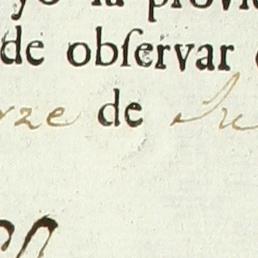 yo la provi
de obſervar
rze de Ju